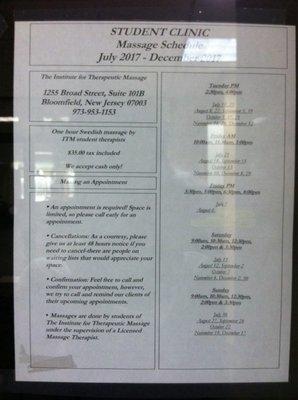 STUDENT CLINIC
Massage Schedule
July 2017 - December 2017
The Institute for Therapeutic Massage
1255 Broad Street, Suite 101B
Bloomfield, New Jersey 07003
973-953-1153
One hour Swedish massage by
ITM student therapists
$35.00 tax included
We accept cash only!
Making an Appointment
• An appointment is required! Space is
limited, so please call early for an
appointment.
• Cancellations: As a courtesy, please
give us at least 48 hours notice if you
need to cancel-there are people on
waiting lists that would appreciate your
space.
• Confirmation: Feel free to call and
confirm your appointment, however,
we try to call and remind our clients of
their upcoming appointments.
• Massages are done by students of
The Institute for Therapeutic Massage
under the supervision of a Licensed
Massage Therapist.
Tuesday PM
2:30pm, 4:00pm
July
August
October
November
Friday AM
10:00am, 11:30am, 1:00pm
July
August
October
November
Friday PM
July
August
Saturday
9:00am, 10:30am, 12:30pm,
2:00pm & 3:30pm
July
August 12, September 2
October
November 4, December 2, 30
Sunday
9:00am, 10:30am, 12:30pm,
2:00pm & 3:30pm
July 30
August 27, September 24
October 22
November 19, December 17